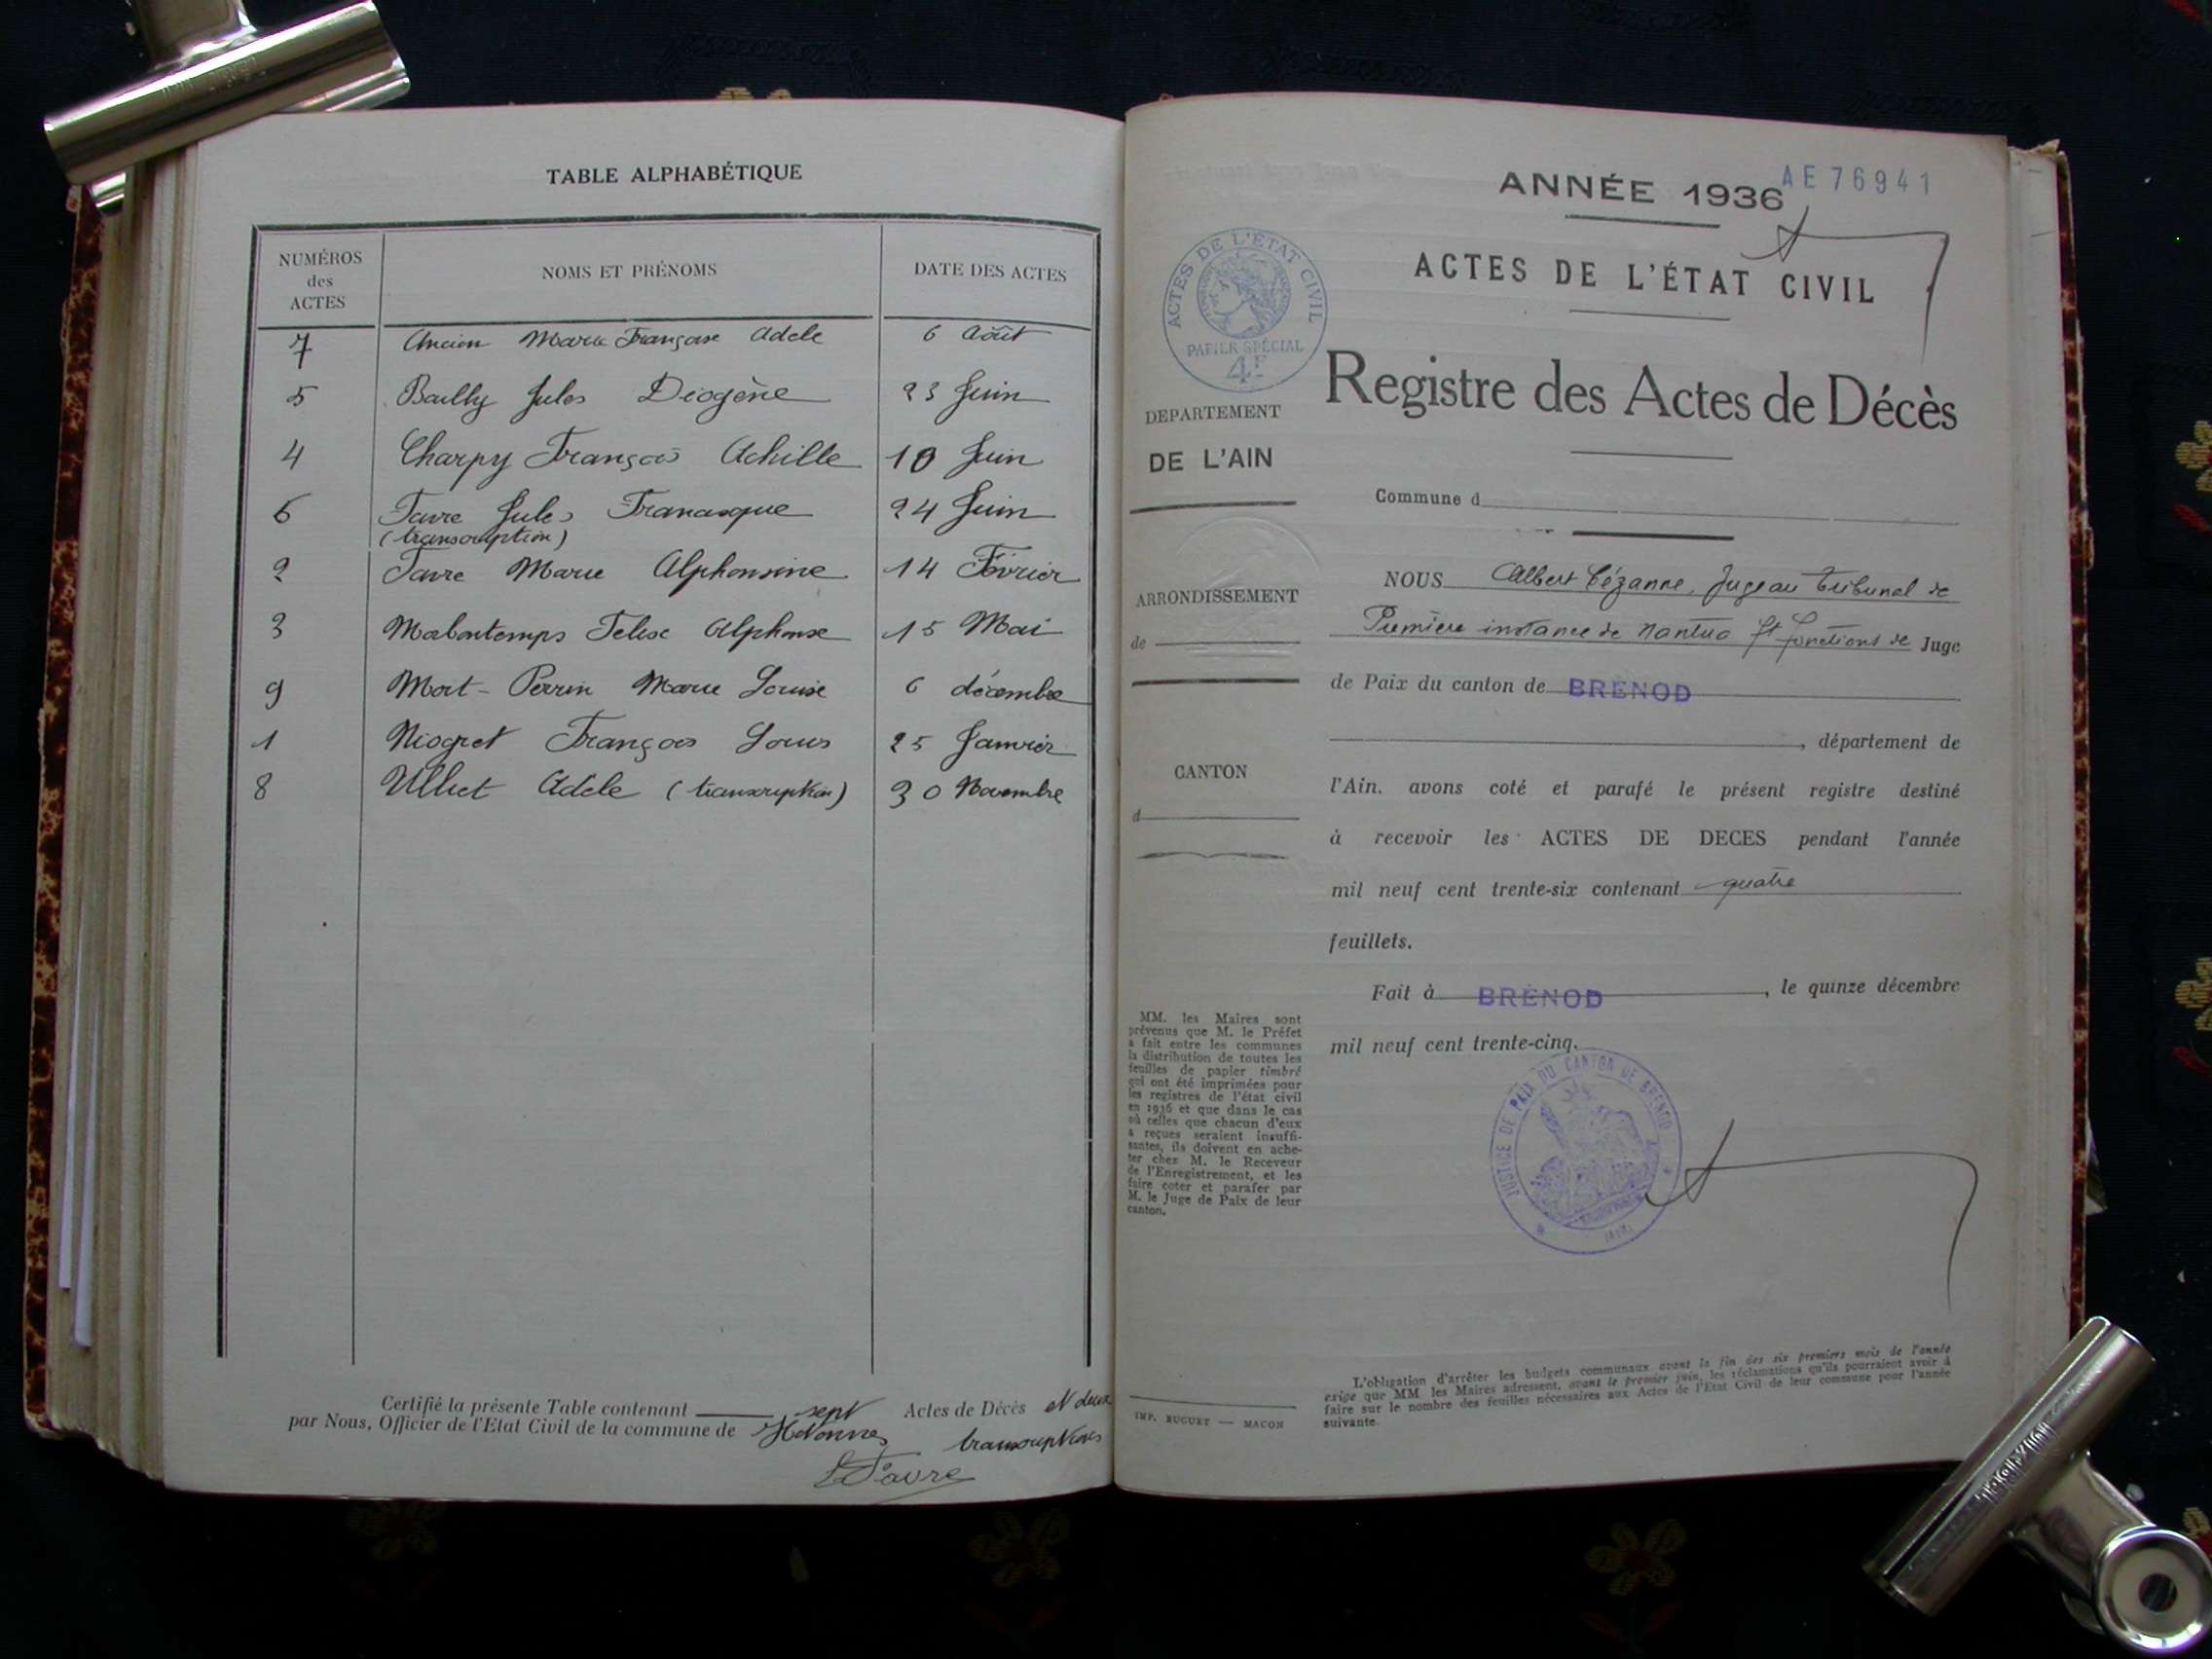 TABLE ALPHABÉTIQUE
NUMÉROS des ACTES
NOMS ET PRÉNOMS
DATE DES ACTES
7 Ancian Marie Françoise Adèle 6 Août
5 Bailly Jules Diogène 23 Juin
4 Charpy François Achille 10 Juin
6 Favre Jules (transcription) 24 Juin
2 Favre Marie Alphonsine 14 Février
3 Malbontemps Félix Alphonse 15 Mai
9 Mort-Perrin Marie Louise 6 décembre
1 Niogret François Louis 25 Janvier
8 Ulliet Adèle (transcription) 30 Novembre
Certifié la présente Table contenant sept Actes de Décès et deux
par Nous, Officier de l'Etat Civil de la commune de Hotonnes transcriptions
Favre
ANNÉE 1936
AE 76941
ACTES DE L'ÉTAT CIVIL
Registre des Actes de Décès
ACTES DE L'ÉTAT CIVIL
PAPIER SPÉCIAL
4F
DEPARTEMENT
DE L'AIN
ARRONDISSEMENT
de
CANTON
d
Commune d
NOUS Albert Cézanne, Juge au Tribunal de
Première instance de Nantua ft fonctions de Juge
de Paix du canton de BRÉNOD
, département de
l'Ain, avons coté et parafé le présent registre destiné
à recevoir les ACTES DE DECES pendant l'année
mil neuf cent trente-six contenant quatre
feuillets.
Fait à BRÉNOD, le quinze décembre
mil neuf cent trente-cinq.
JUSTICE DE PAIX DU CANTON DE BRENOD
MM. les Maires sont
prévenus que M. le Préfet
a fait entre les communes
la distribution de toutes les
feuilles de papier timbré
qui ont été imprimées pour
les registres de l'état civil
en 1936 et que dans le cas
où celles que chacun d'eux
a reçues seraient insuffi-
santes, ils doivent en ache-
ter chez M. le Receveur
de l'Enregistrement, et les
faire coter et parafer par
M. le Juge de Paix de leur
canton.
IMP. BUGUET — MACON
L'obligation d'arrêter les budgets communaux avant la fin des six premiers mois de l'année
exige que MM. les Maires adressent, avant le premier juin, les réclamations qu'ils pourraient avoir à
faire sur le nombre des feuilles nécessaires aux Actes de l'Etat Civil de leur commune pour l'année
suivante.